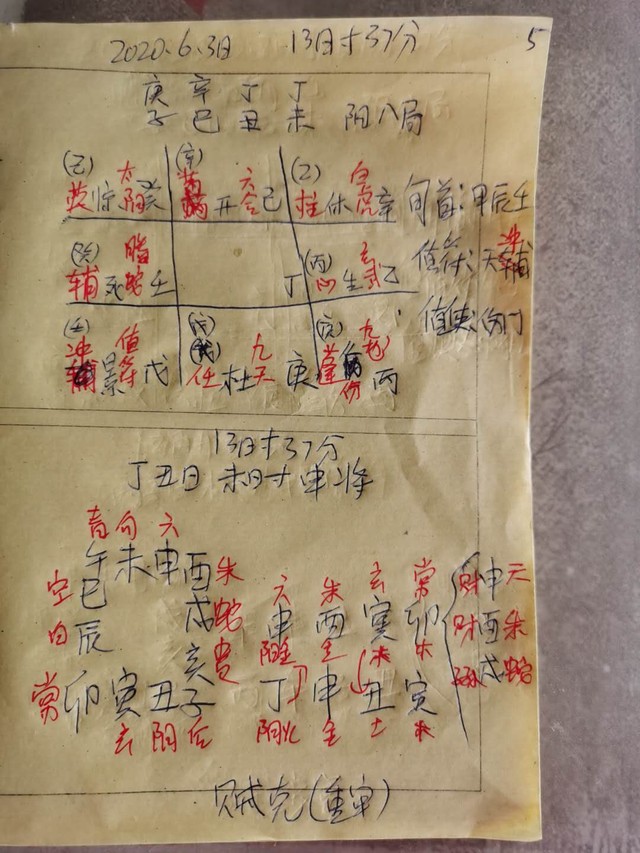 2020.6.3日 13时37分 5
庚 辛 丁 丁
子 巳 丑 未 阳八局
(己) (辛) (乙)
英 惊 太阴 癸 芮 开 六合 己 柱 休 白虎 辛 旬首:甲辰壬
(癸) (丙) 冲
辅 死 螣蛇 壬 丁 心 生 玄武 乙 值符:天辅
值使:伤门
(壬) (戊) (庚)
冲 景 值符 戊 任 杜 九天 庚 蓬 伤 九地 丙
13时37分
丁丑日 未时 申将
青 勾 六
午 未 申 酉 朱 六 朱 玄 常
空 巳 戌 蛇 申 酉 寅 卯 财 申 六
白 辰 亥 贵 阳金 金 木 木 财 酉 朱
常 卯 寅 丑 子 丁 申 丑 寅 孙 戌 蛇
玄 阴 后 阴火 金 土 木
贼克(重审)